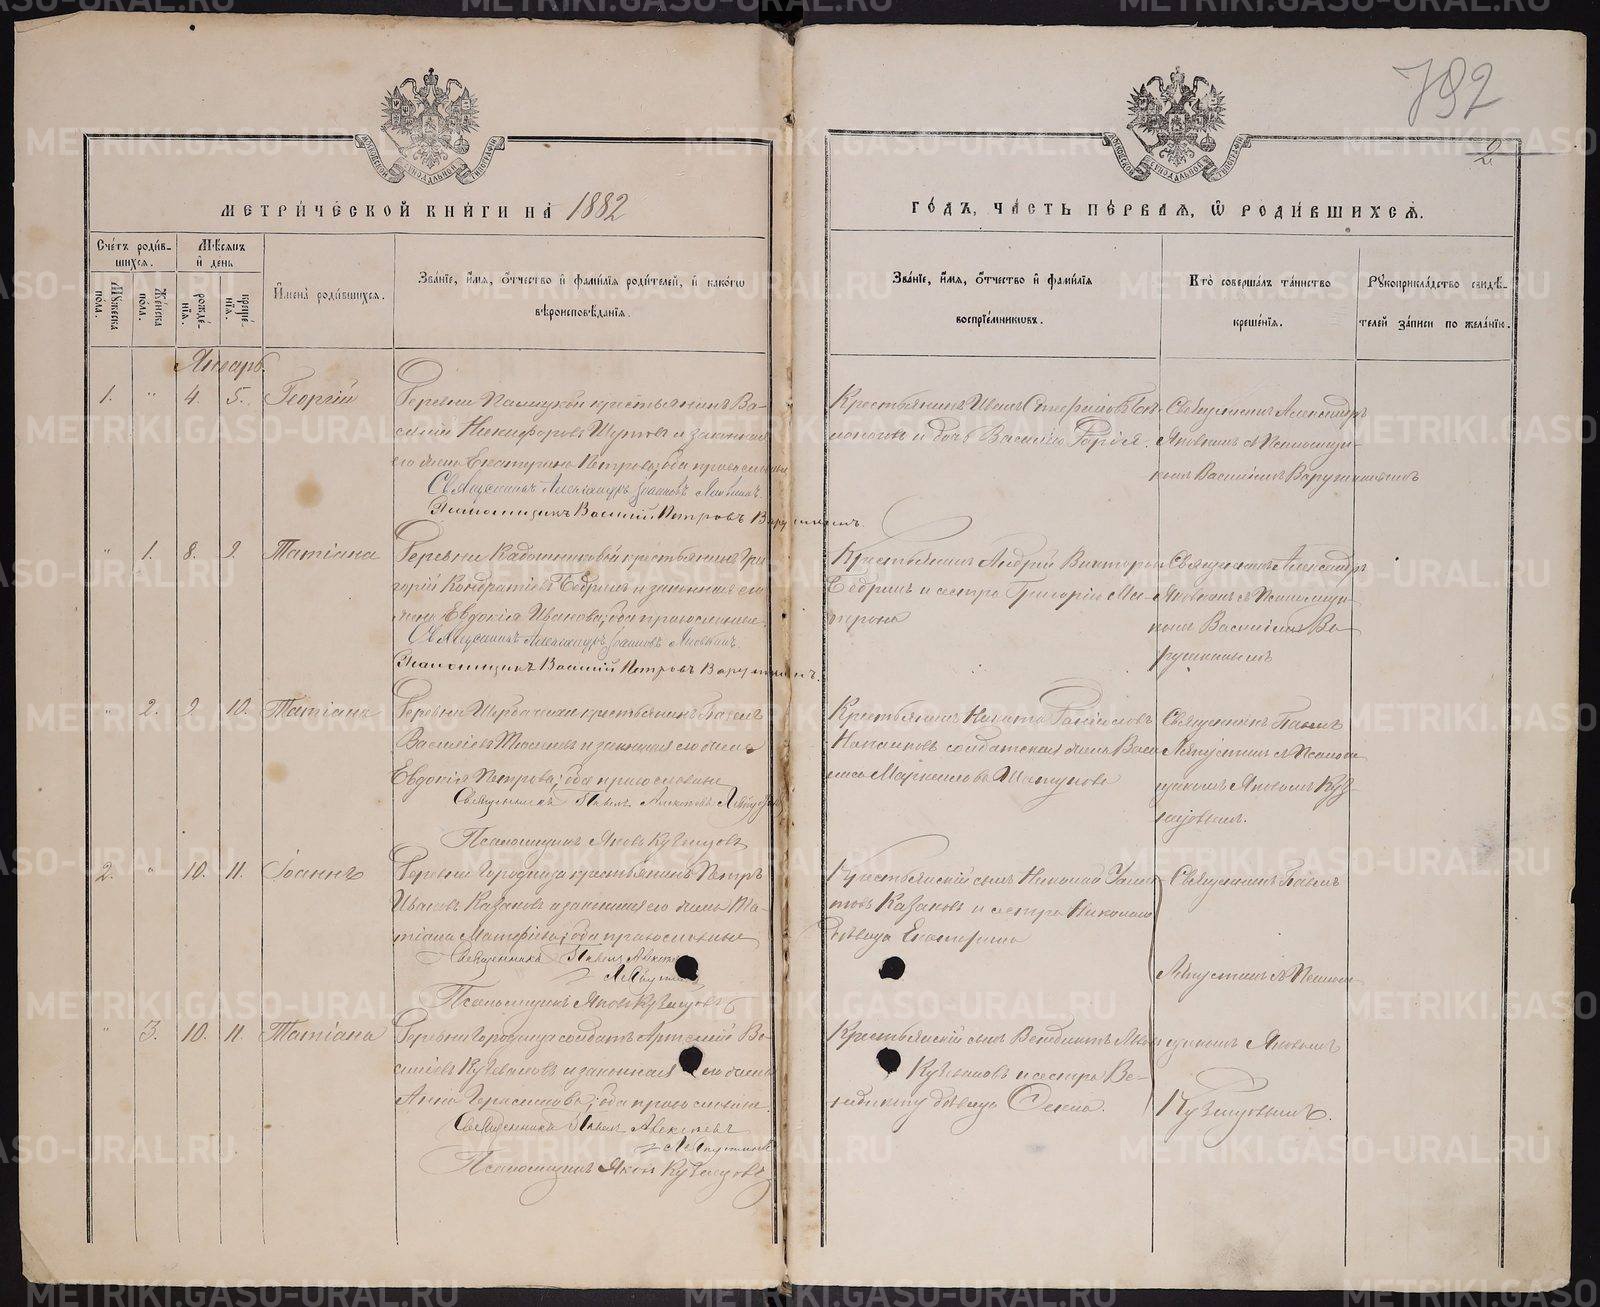 792
2
МЕТРИЧЕСКОЙ КНИГИ НА 1882
ГОДЪ, ЧАСТЬ ПЕРВАЯ, Ѡ РОДИВШИХСЯ.
Счетъ родив-
шихся.
Мѣсяцъ
и день
Мужеска
пола.
Женска
пола.
рожде-
нія.
креще-
нія.
Имена родившихся.
Званіе, имя, отчество и фамилія родителей, и какогѡ
вѣроисповѣданія.
Званіе, имя, отчество и фамилія
воспріемниковъ.
Кто совершалъ таинство
крещенія.
Рукоприкладство свидѣ-
телей записи по желанію.
Январь.
1. " 4. 5. Георгій
Деревни крестьянинъ Ва-
силій Никифоровъ и законная
его жена Екатерина Петрова; оба православные
Священникъ Александръ Іоанновъ Яковкинъ.
Псаломщикъ Василій Петровъ Варушкинъ.
Крестьянинъ Иванъ Стефановъ
и дочь Василія
Священникъ Александръ
Яковкинъ съ Псаломщи-
комъ Василіемъ Варушкинымъ
" 1. 8. 9. Татіана
Деревни Кадошниковой крестьянинъ Гри-
горій Кондратіевъ и законная его
жена Евдокія Иванова; оба православные.
Священникъ Александръ Іоанновъ Яковкинъ.
Псаломщикъ Василій Петровъ Варушкинъ.
Крестьянинъ Андрей
и сестра Григорія Ма-
трона
Священникъ Александръ
Яковкинъ съ Псаломщи-
комъ Василіемъ Ва-
рушкинымъ
" 2. 9. 10. Татіана
Деревни крестьянинъ Павелъ
Василіевъ и законная его жена
Евдокія Петрова; оба православные
Священникъ Павелъ Алексѣевъ Ляпустинъ
Псаломщикъ Яковъ Кузнецовъ
Крестьянинъ Никита
солдатская жена Васи-
лиса
Священникъ Павелъ
Ляпустинъ съ Псалом-
щикомъ Яковомъ Куз-
нецовымъ.
2. " 10. 11. Іоаннъ
Деревни Городища крестьянинъ Петръ
Ивановъ Казаковъ и законная его жена Та-
тіана Матфіева; оба православные
Священникъ Павелъ Алексѣевъ
Ляпустинъ
Псаломщикъ Яковъ Кузнецовъ
Крестьянскій сынъ Николай
Казаковъ и сестра Николая
дѣвица Екатерина
Священникъ Павелъ
Ляпустинъ съ Псалом-
" 3. 10. 11. Татіана
Деревни Городища солдатъ Артемій Ва-
силіевъ и законная его жена
Анна Герасимова; оба православные.
Священникъ Павелъ Алексѣевъ
Ляпустинъ
Псаломщикъ Яковъ Кузнецовъ
Крестьянскій сынъ Венедиктъ
и сестра Ве-
недикту дѣвица
щикомъ Яковомъ
Кузнецовымъ.
METRIKI.GASO-URAL.RU